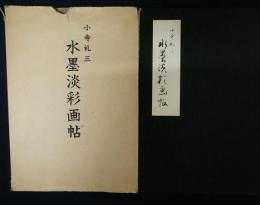 小寺礼三
水墨淡彩画帖
水墨淡彩画帖